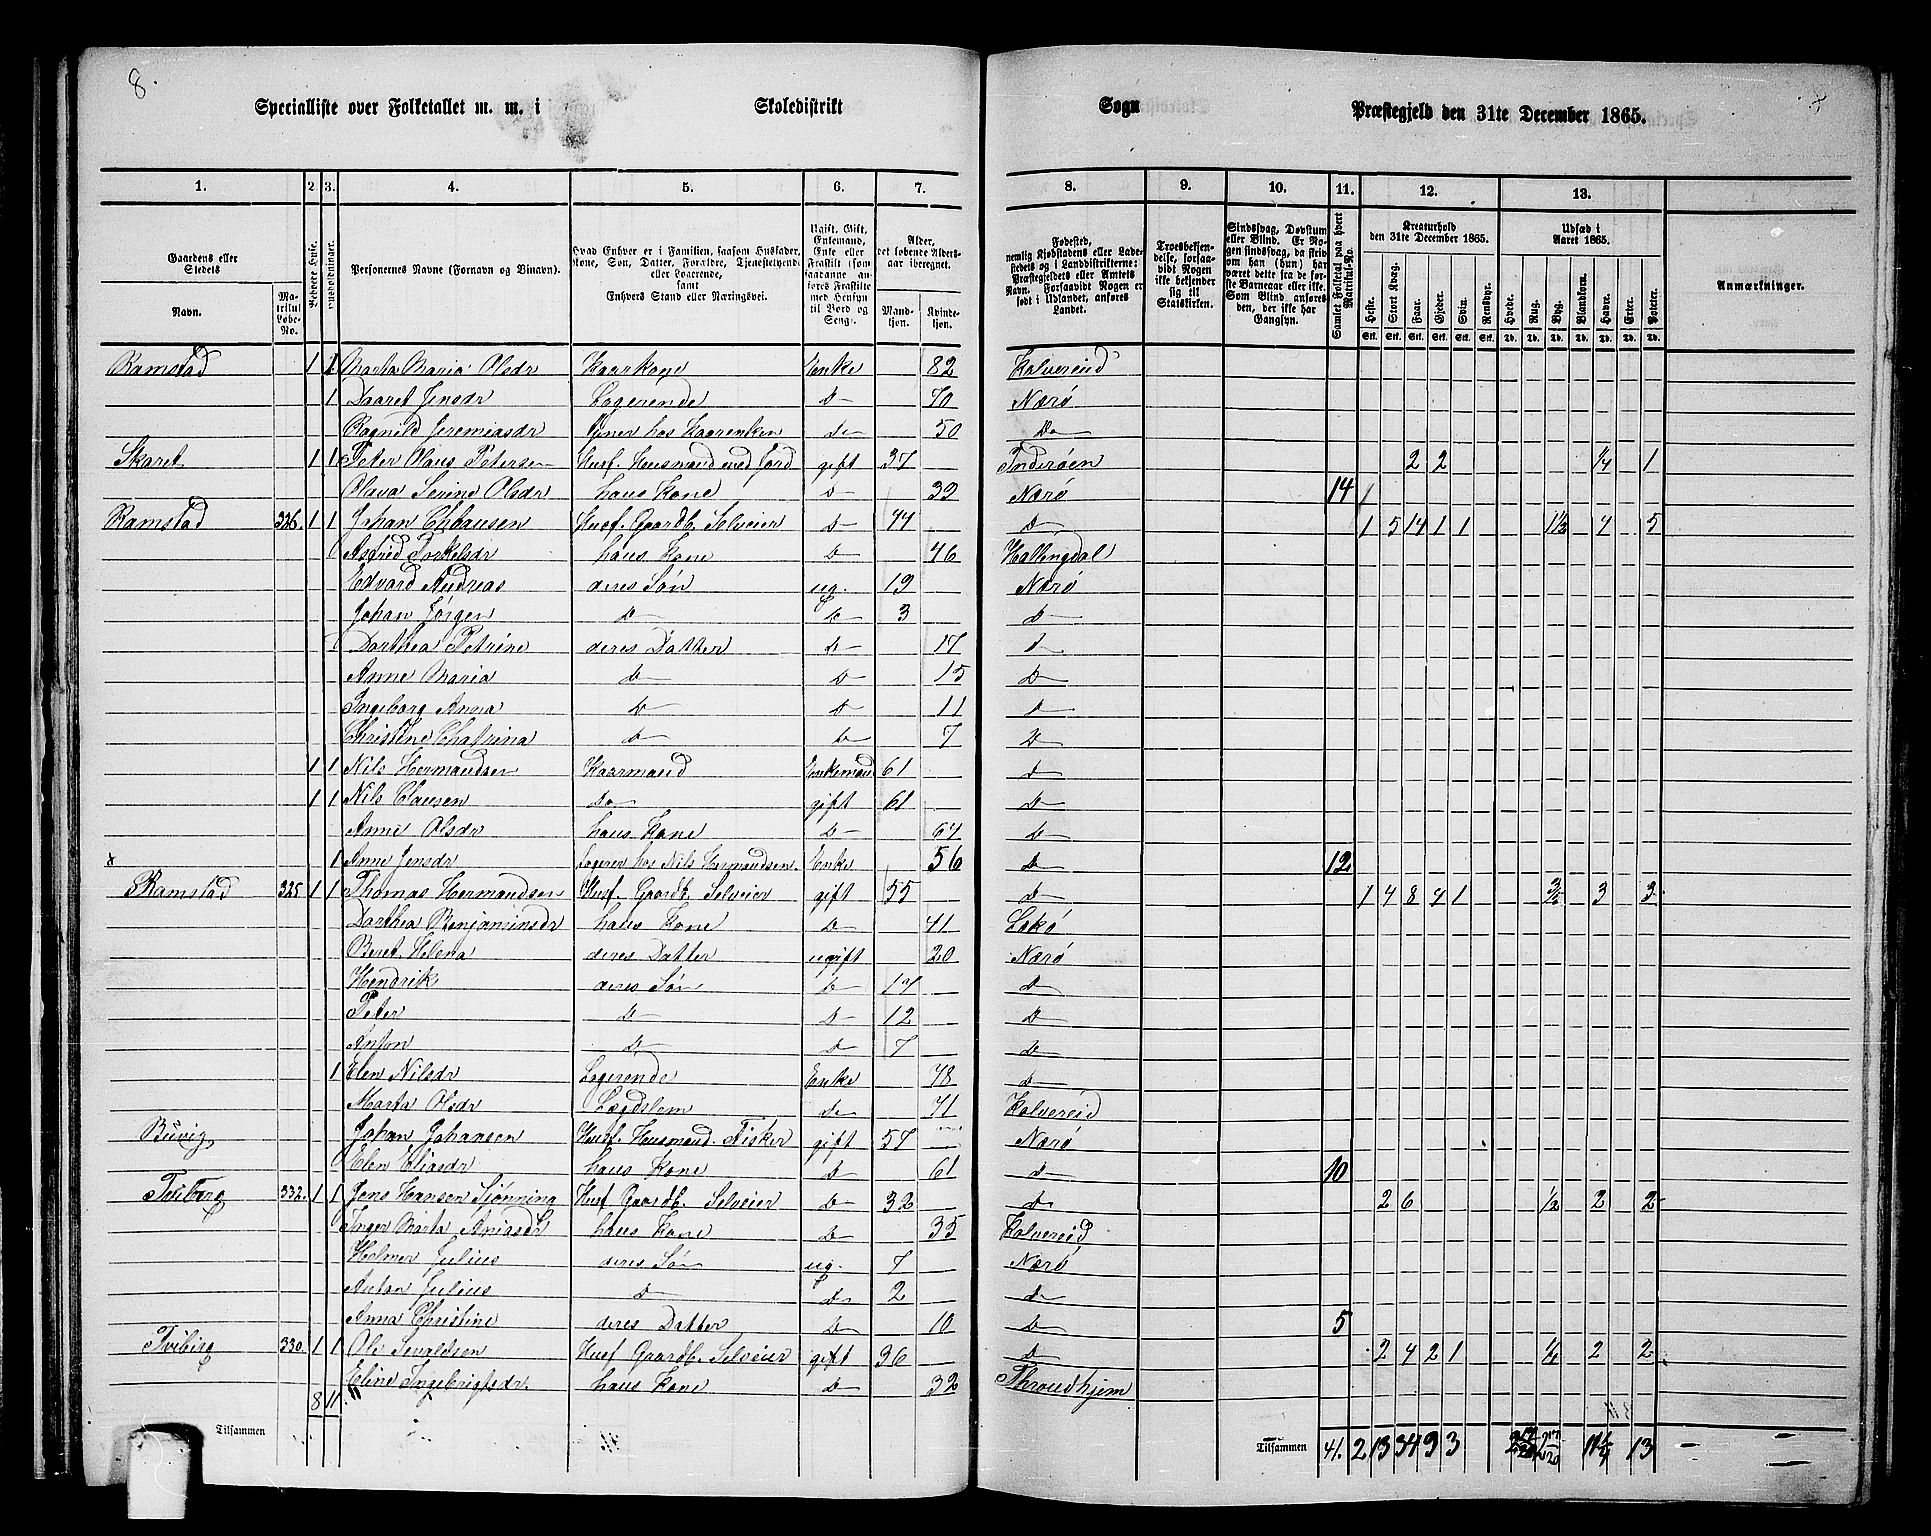 8.
Specialliste over Folketallet m. m. i Skoledistrikt Sogn Præstegjeld den 31te December 1865.
1. 2 3. 4. 5. 6. 7. 8. 9. 10. 11. 12. 13.
Gaardens eller Stedets Navn. Matrikul Løbe-No. Beboede Huse. Husholdninger. Personernes Navne (Fornavn og Tilnavn). Hvad Enhver er i Familien, saasom Husfader, Kone, Søn, Datter, Forældre, Tjenestetyende eller Logerende, samt Enhvers Stand eller Næringsvei. Alder, det løbende Aldersaar iberegnet. Mandkjøn. Kvindekjøn.
Kreaturhold den 31te December 1865. Udsæd i Aaret 1865. Anmærkninger.
Heste. Stort Kvæg. Faar. Gjeder. Svin. Rensdyr. Hvede. Rug. Byg. Blandkorn. Havre. Erter. Poteter.
Ramstad 1 1 Marta Maria Olsdr Kaarkone Enke 82 Kolvereid
1 Daaret Jensdr Logerende D 70 Nærø
Ragnild Jeremiasdr Tjener hos Kaarenken do 50 Do
Skaret 1 1 Peter Olaus Petersen Husf. Husmand med Jord gift 37 Inderøen 2 2 1/4 1
Olava Serine Olsdr hans Kone D 32 Nærø 14
Ramstad 326 1 1 Johan Clausen Husf. Gaardb. Selveier D 44 D 1 5 14 1 1 1 1/2 4 5
Astrid Torkelsdr hans Kone D 46 Hallingdal
Edvard Andreas deres Søn ug. 19 Nærø
Johan Jørgen D D 3 D
Dorthea Petrine deres Datter D 17 D
Anne Maria D D 15 D
Ingeborg Anna D D 11 D
Christine Chatrina D D 7 D
1 1 Nils Hermandsen Kaarmand Enkemand 61 D
1 1 Nils Clausen Do gift 61 D
Anne Olsdr hans Kone D 64 D
x 1 Anne Jensdr Logerer hos Nils Hermandsen. Enke 56 D 12
Ramstad 325 1 1 Thomas Hermandsen Husf. Gaardb. Selveier gift 55 D 1 4 8 4 1 3 3
Dorthea Benjaminsdr hans Kone D 41 Lekø
Beret Helena deres Datter ugift 20 Nærø
Hendrik deres Søn D 17 D
Peter D D 12 D
Anton D D 7 D
1 Elen Nilsdr Logerende Enke 48 D
Marta Olsdr Lægdslem do 71 Kolvereid
Buvig Johan Johansen Husf. Husmand. Fisker gift 57 Nærø
Elen Eliasdr hans Kone D 61 D 10
Tviberg 332. 1 1 Jens Hansen Sjønning Husf Gaardb. Selveier D 32 D 2 6 1/2 2 2
Inger Marta hans Kone D 35 Kolvereid
Holmer Julius deres Søn ug. 7 Nærø
Anton Julius D D 2 D
Anna Christine deres Datter D 10 D 5
Tviberg 330. 1 1 Ole Sevaldsen Husf Gaardb. Selveier gift 36 D 2 4 2 1 1/4 2 2
Eline Ingebrigtsdr. hans Kone D 32 Throndhjem
8 11
Tilsammen Tilsammen 41. 2 13 34 9 3 13